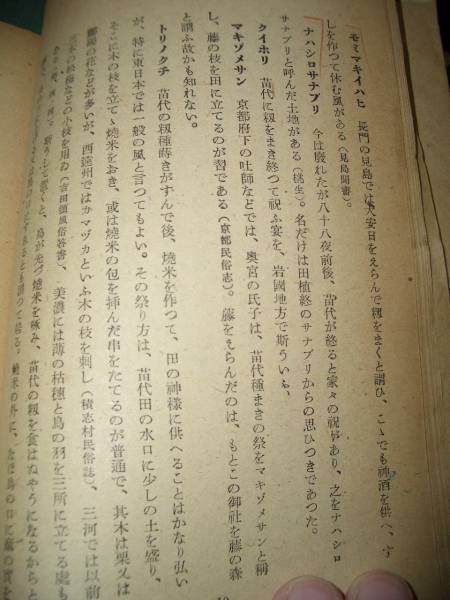 モミマキイハヒ 長門の見島では大安日をえらんで籾をまくと謂ひ、こゝでも神酒を供へ、す
しを作つて休む風がある(見島聞書)。
ナハシロサナブリ 今は廢れたが八十八夜前後、苗代が終ると家々の祝があり、之をナハシロ
サナブリと呼んだ土地がある(桃生)。名だけは田植終のサナブリからの思ひつきであつた。
クイホリ 苗代に籾をまき終つて祝ふ宴を、岩國地方で斯ういふ。
マキゾメサン 京都府下の吐師などでは、奥宮の氏子は、苗代種まきの祭をマキゾメサンと稱
し、藤の枝を田に立てるのが習である(京都民俗志)。藤をえらんだのは、もとこの御社を藤の森
と謂ふ故かも知れない。
トリノクチ 苗代の籾種蒔きがすんで後、燒米を作つて、田の神様に供へることはかなり弘い
が、特に東日本では一般の風と言つてもよい。その祭り方は、苗代田の水口に少しの土を盛り、
そこに木の枝を立て、燒米をおき、或は燒米の包を挿んだ串をたてるのが普通で、其木は栗又は
躑躅の花などが多いが、西遠州ではカマヅカといふ木の枝を刺し(積志村民俗誌)、三河では以前
三本の松梅などの小枝を用ゐ(吉田領風俗答書)、美濃には薄の枯穗と鳥の羽を三所に立てる處も
斯うして置くと、鳥が先づ燒米を啄み、苗代の籾を食はぬやうになるからと